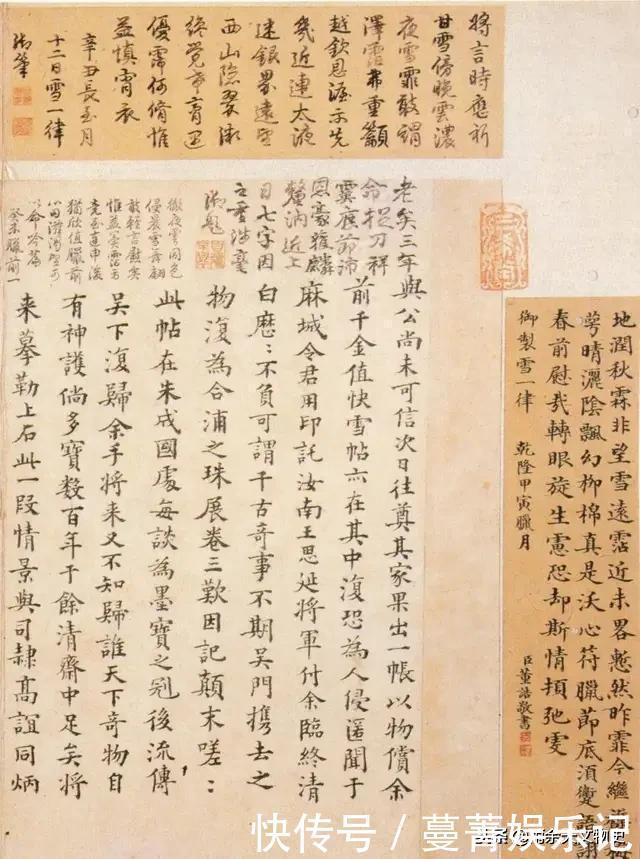 將言時應祈
甘雪傍晚雲濃
夜雪霏敧謂
澤霑弗重籲
越欽恩渥示先
幾近連太液
迷銀界遠望
西山隱翠微
終覺膏遲
優霈何脩惟
益慎宵衣
辛丑長至月
十二日雪一律
御筆
地潤秋霖非望雪遠霑近未畧慙然昨霏今繼滋梅
萼晴灑陰飄幻柳棉真是沃心符臘節底須語詡
春前慰我轉眼旋生慮恐却斯情頻弛雯
御製雪一律 乾隆甲寅臘月
臣董誥敬書
老矣三年
與公尚未可信次日往奠其家果出一帳以物償余
前千金值快雪帖亦在其中復恐為人侵匿聞于
麻城令君用印託汝南王思延將軍付余臨終清
白歷歷不負可謂千古奇事不期吳門携去之
物復為合浦之珠展卷三歎因記顛末嗟嗟
此帖在朱成國處每談為墨寶之冠後流傳
吳下復歸余手將來又不知歸誰天下奇物自
有神護倘多寶數百年于餘清齋中足矣將
來摹勒上石此一段情景與司隸高誼同炳
徹夜雲同色
侵晨雪舞翩
敢輕言慰矣
惟益冀霑旃
竟至連申後
猶欣值臘前
癸未臘前一
快传号/蔓菁娱乐记